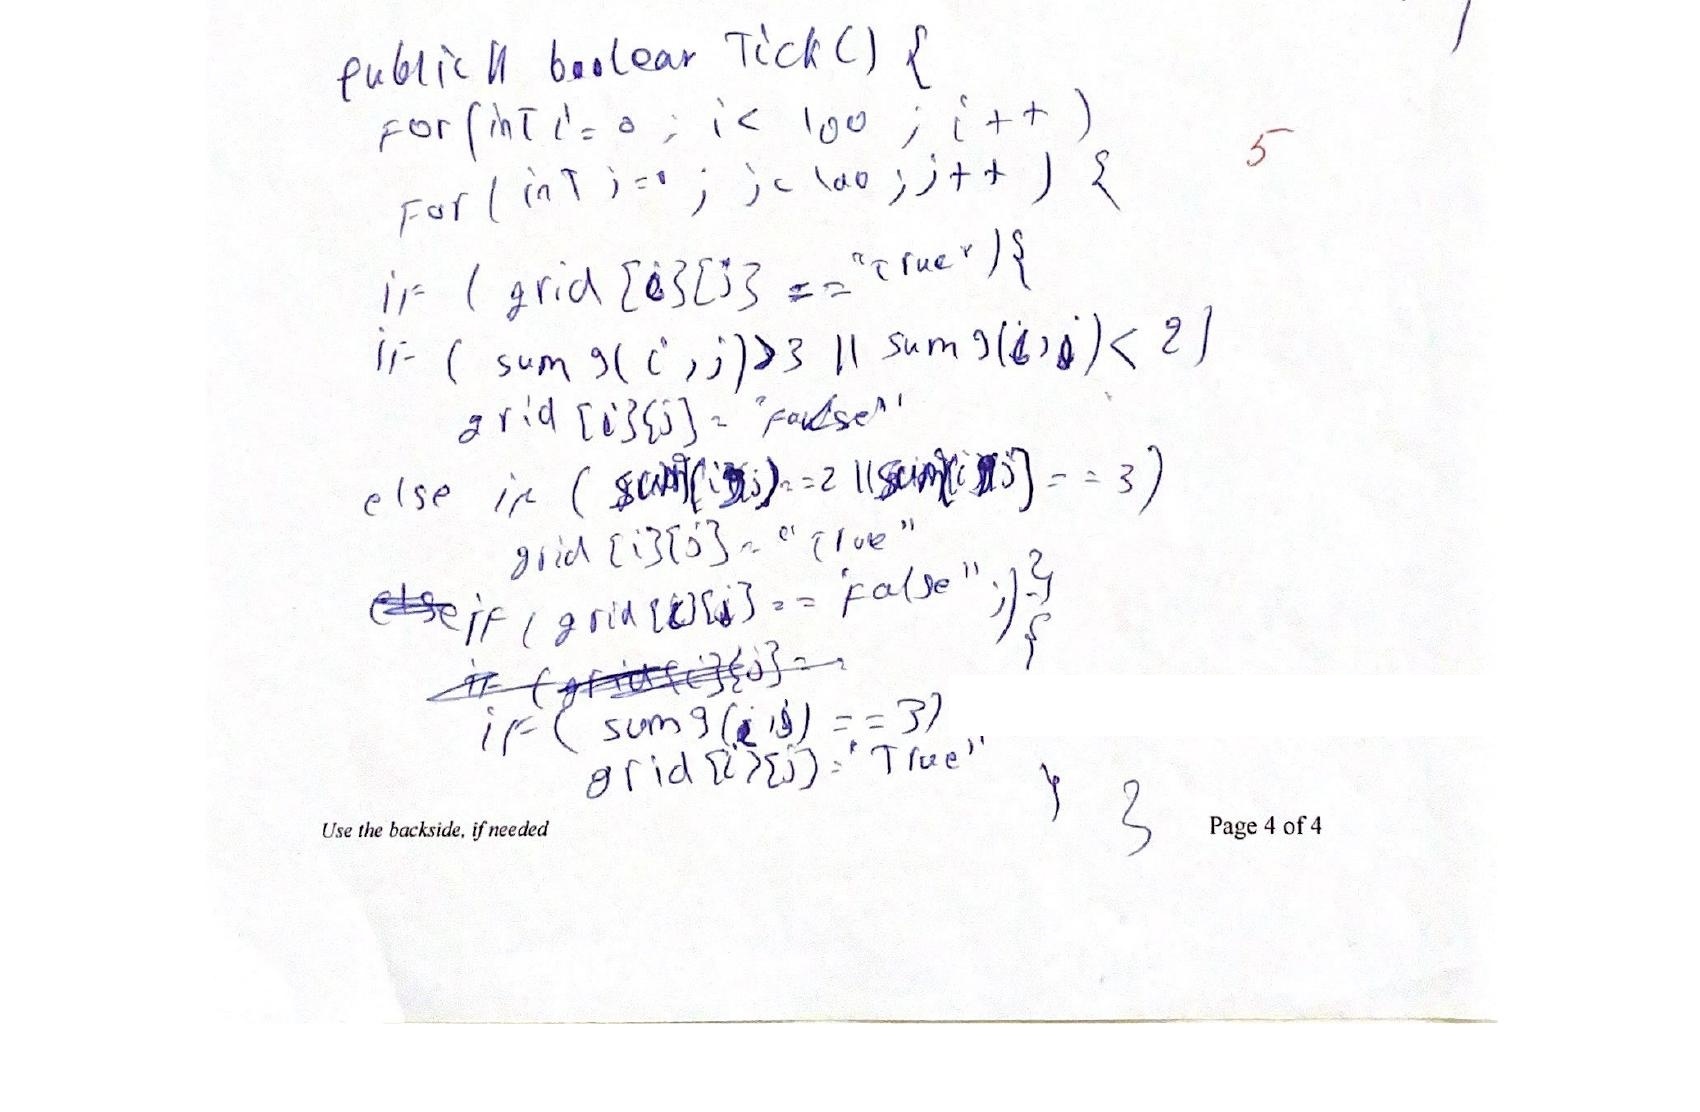 public boolear Tick() {
For(inT i=0; i< 100; i++)
5
For( inT j=0; j< 100; j++) {
iF ( grid [i}[j} =="True"){
iF ( sum9( i,j)>3 || sum9(i,j)< 2)
grid [i}{j] = "False"
else iF ( ==2 || == 3)
grid [i}[j} = "True"
iF ( grid [i}[j} == "False";)}
{
iF ( sum9(i,j) == 3)
grid [i}[j) = "True"
} }
Use the backside, if needed
Page 4 of 4